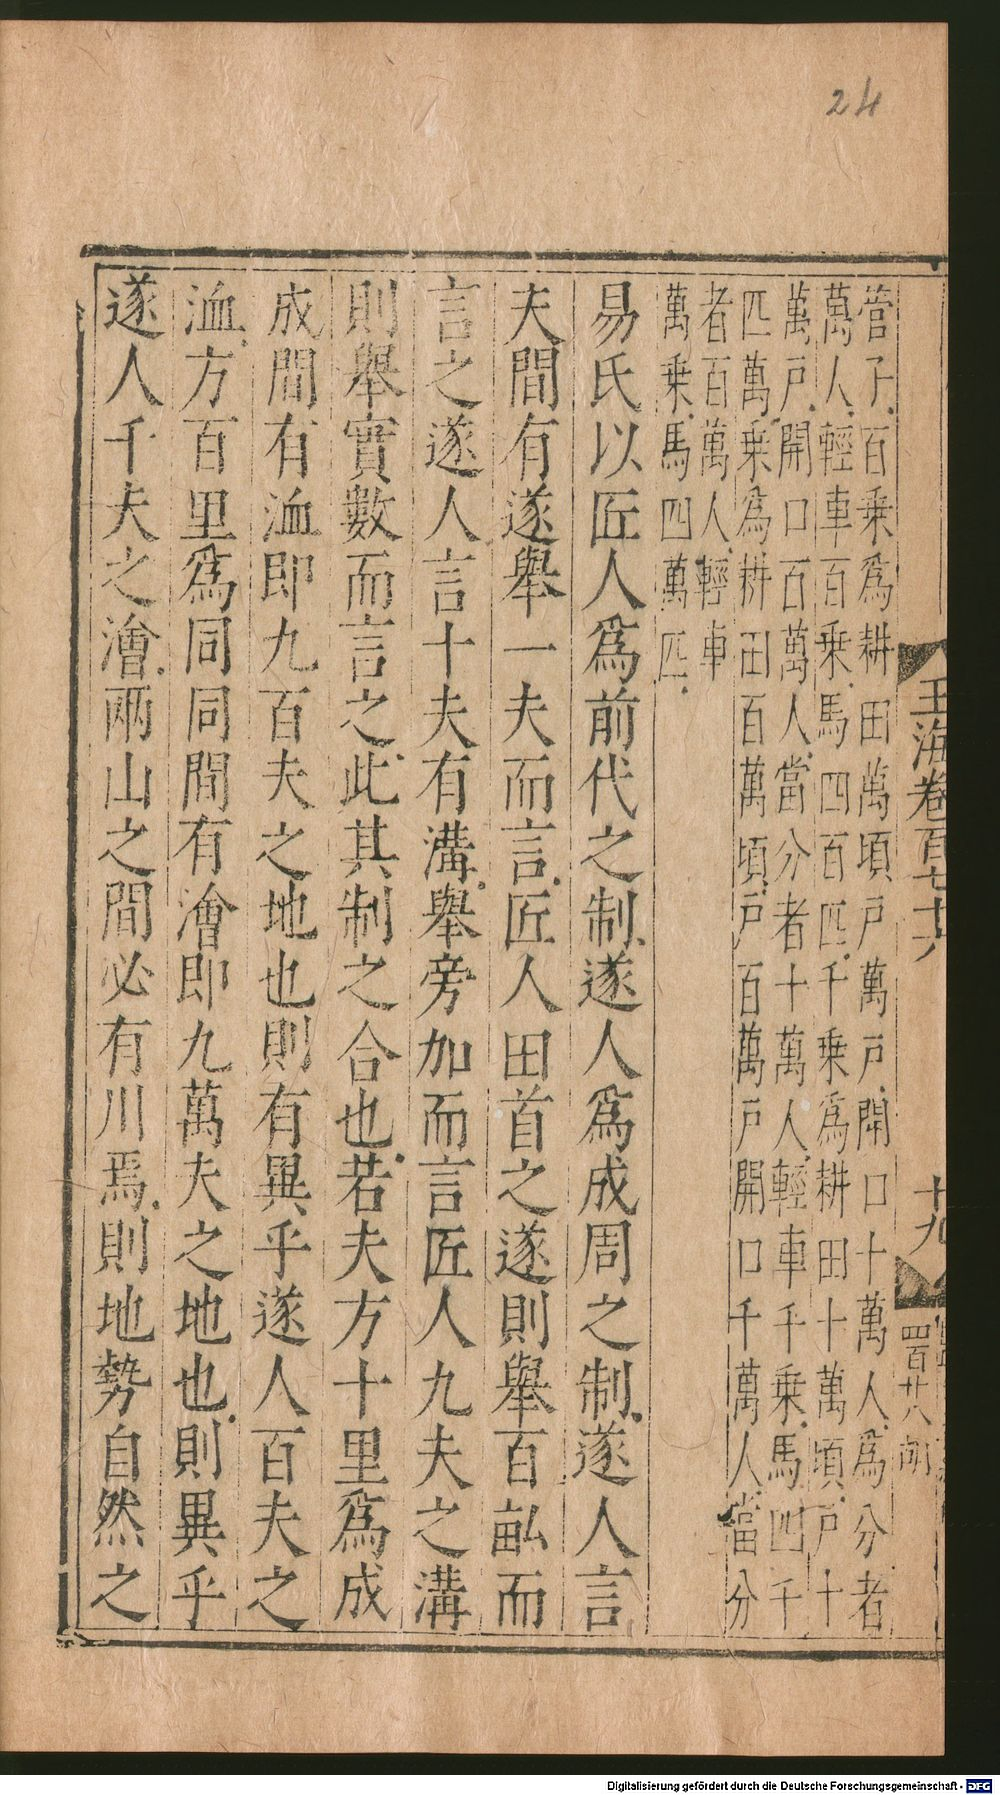 24
玉海卷百七十六
十九
四百廿八
管子百乗爲耕田萬頃戸萬戸開口十萬人爲分者
萬人輕車百乗馬四百匹千乗爲耕田十萬頃戸十
萬戸開口百萬人當分者十萬人輕車千乗馬四千
匹萬乗爲耕田百萬頃戸百萬戸開口千萬人當分
者百萬人輕車
萬乗馬四萬匹
易氏以匠人爲前代之制遂人爲成周之制遂人言
夫間有遂舉一夫而言匠人田首之遂則舉百畝而
言之遂人言十夫有溝舉旁加而言匠人九夫之溝
則舉實數而言之此其制之合也若夫方十里爲成
成間有洫即九百夫之地也則有異乎遂人百夫之
洫方百里爲同同間有澮即九萬夫之地也則異乎
遂人千夫之澮兩山之間必有川焉則地勢自然之
Digitalisierung gefördert durch die Deutsche Forschungsgemeinschaft - DFG